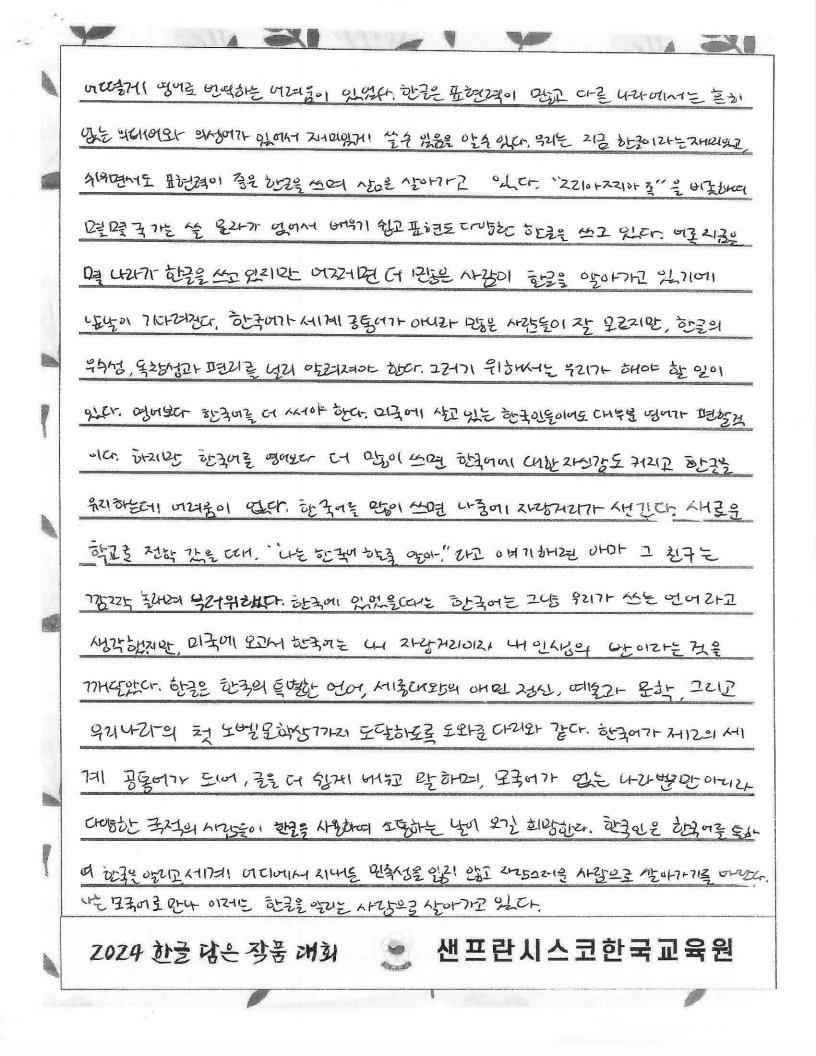 어떻게 영어로 번역하는 어려움이 있었다. 한글은 표현력이 많고 다른 나라에서는 흔히
없는 의태어와 의성어가 있어서 재미있게 쓸 수 있음을 알 수 있다. 우리는 지금 한글이라는 재미있고,
쉬우면서도 표현력이 좋은 한글을 쓰며 삶을 살아가고 있다. "찌아찌아 족"을 비롯하여
몇몇 국가는 쓸 문자가 없어서 배우기 쉽고 표현도 다양한 한글을 쓰고 있다. 비록 지금은
몇 나라가 한글을 쓰고 있지만 어쩌면 더 많은 사람이 한글을 알아가고 있기에
기다려진다. 한국어가 세계 공통어가 아니라 많은 사람들이 잘 모르지만, 한글의
우수성, 독창성과 편리를 널리 알려져야 한다. 그러기 위해서는 우리가 해야 할 일이
있다. 영어보다 한국어를 더 써야 한다. 미국에 살고 있는 한국인들이어도 대부분 영어가 편할것
이다. 하지만 한국어를 영어보다 더 많이 쓰면 한국어에 대한 자신감도 커지고 한글을
유지하는데 어려움이 없다. 한국어를 많이 쓰면 나중에 자랑거리가 생긴다. 새로운
학교로 전학 갔을 때, "나는 한국어 할줄 알아." 라고 얘기하면 아마 그 친구는
깜짝 놀라며 부러워했다. 한국에 있었을때는 한국어는 그냥 우리가 쓰는 언어라고
생각했지만, 미국에 오고서 한국어는 내 자랑거리이자 내 인생의 반이라는 것을
깨달았다. 한글은 한국의 특별한 언어, 세종대왕의 애민 정신, 예술과 문학, 그리고
우리나라의 첫 노벨문학상까지 도달하도록 도와준 다리와 같다. 한국어가 제2의 세
계 공통어가 되어, 글을 더 쉽게 배우고 말하며, 모국어가 없는 나라뿐만 아니라
다양한 국적의 사람들이 한글을 사용하며 소통하는 날이 오길 희망한다. 한국인은 한국어를 통하
여 한국은 알리고 세계 어디에서 지내든 민족성을 잃지 않고 자랑스러운 사람으로 살아가기를 바란다.
나는 모국어로 만나 이제는 한글을 알리는 사람으로 살아가고 있다.
2024 한글 담은 작품 대회 샌프란시스코한국교육원